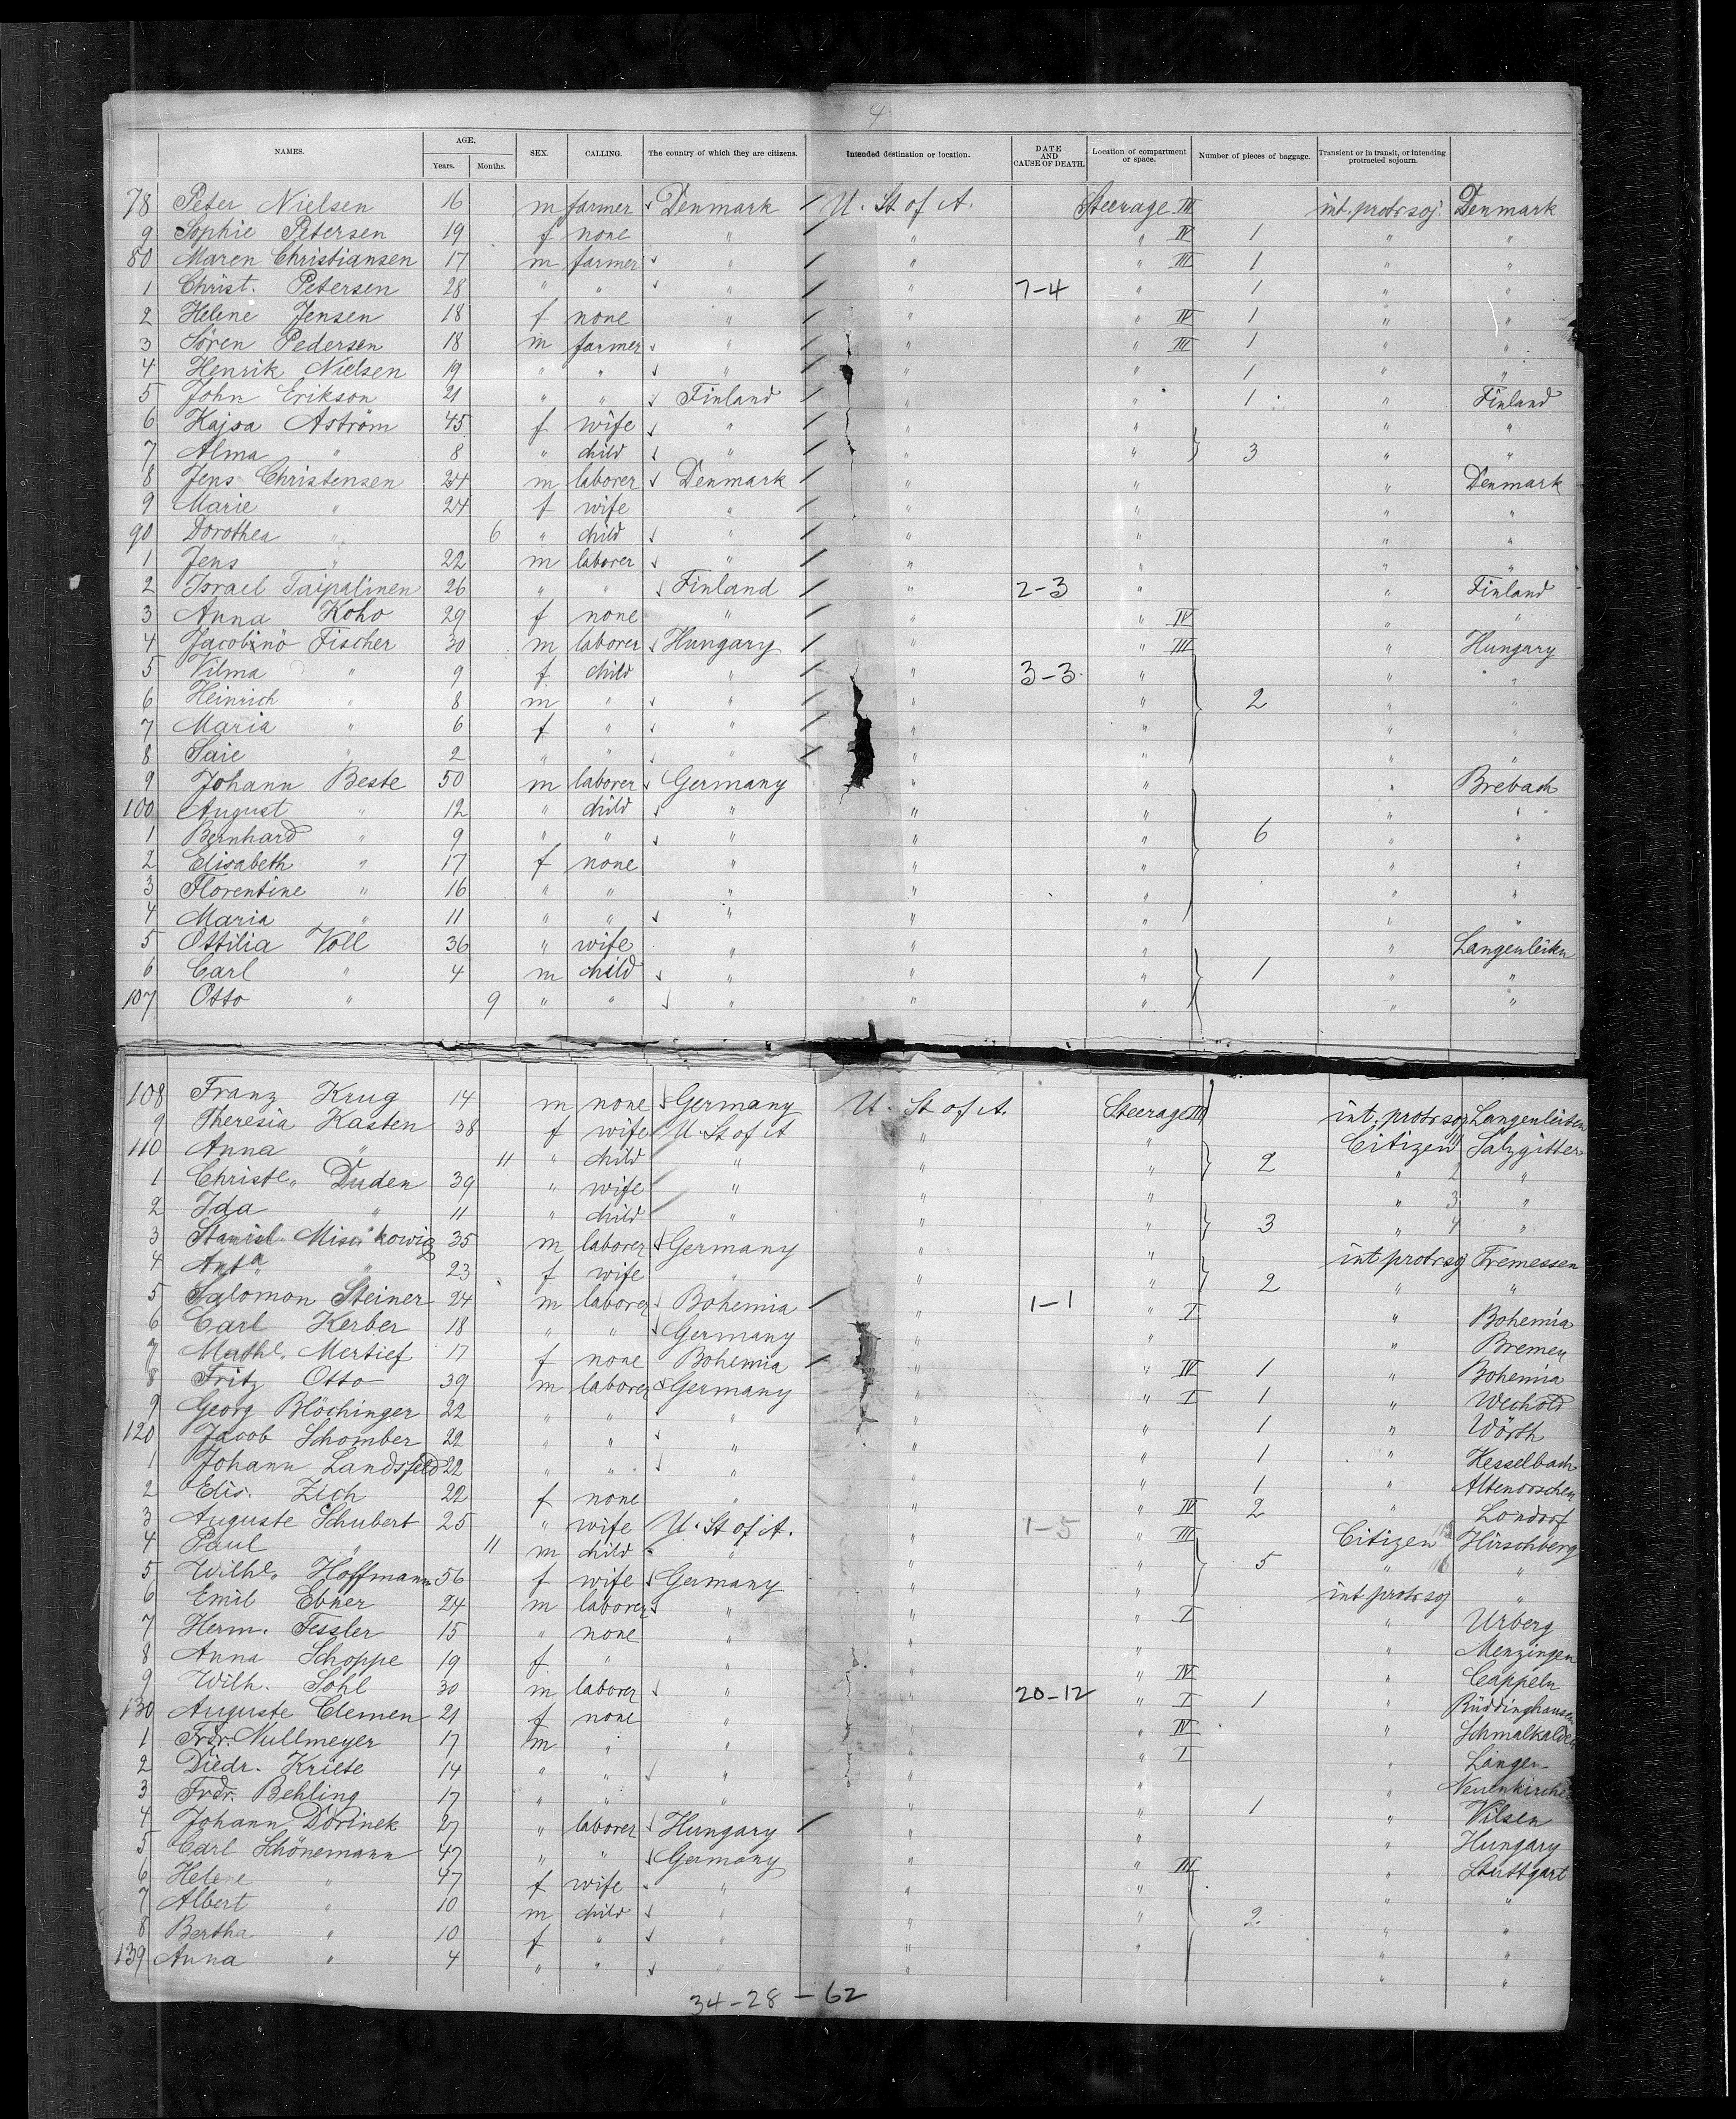 4
NAMES. AGE. Years. Months. SEX. CALLING. The country of which they are citizens. Intended destination or location. DATE AND CAUSE OF DEATH. Location of compartment or space. Number of pieces of baggage. Transient or in transit, or intending protracted sojourn.
78 Peter Nielsen 16 m farmer Denmark U. St of A. Steerage III int. protr soj. Denmark
9 Sophie Petersen 19 f none " " " IV 1 " "
80 Maren Christiansen 17 m farmer " " " III 1 " "
1 Christ. Petersen 28 " " " " 7-4 " 1 " "
2 Helene Jensen 18 f none " " " IV 1 " "
3 Sören Pedersen 18 m farmer " " " III 1 " "
4 Henrik Nielsen 19 " " " " " 1 " "
5 John Erikson 21 " " Finland " " 1 " Finland
6 Kajsa Aström 45 f wife " " " " "
7 Alma " 8 " child " " " 3 " "
8 Jens Christensen 24 m laborer Denmark " " " Denmark
9 Marie " 24 f wife " " " " "
90 Dorothea " 6 " child " " " " "
1 Jens " 22 m laborer " " " " "
2 Israel Taipalinen 26 " " Finland " 2-3 " " Finland
3 Anna Koho 29 f none " " " IV " "
4 Jacobinö Fischer 30 m laborer Hungary " " III " Hungary
5 Vilma " 9 f child " " 3-3 " " "
6 Heinrich " 8 m " " " " 2 " "
7 Maria " 6 f " " " " " "
8 Saie " 2 " " " " " " "
9 Johann Beste 50 m laborer Germany " " " Brebach
100 August " 12 " child " " " " "
1 Bernhard " 9 " " " " " 6 " "
2 Elisabeth " 17 f none " " " " "
3 Florentine " 16 " " " " " " "
4 Maria " 11 " " " " " " "
5 Ottilia Voll 36 " wife " " " " Langenleiten
6 Carl " 4 m child " " " 1 " "
107 Otto " 9 " " " " " " "
108 Franz Krug 14 m none Germany U. St of A. Steerage III int. protr soj Langenleiten
9 Theresia Kasten 38 f wife U. St of A " " Citizen 1 Salzgitter
110 Anna " 11 " child " " " 2 " 2 "
1 Christe. Duden 39 " wife " " " " 3 "
2 Ida " 11 " child " " " 3 " 4 "
3 35 m laborer Germany " " int protr soj Tremessen
4 Anta " 23 f wife " " " 2 " "
5 Salomon Steiner 24 m laborer Bohemia " 1-1 " I " Bohemia
6 Carl Kerber 18 " " Germany " " " Bremen
7 Mathl. Mertief 17 f none Bohemia " " IV 1 " Bohemia
8 Fritz Otto 39 m laborer Germany " " I 1 " Wechold
9 Georg Blöchinger 22 " " " " " 1 " Wörth
120 Jacob Schomber 22 " " " " " 1 " Hesselbach
1 Johann Landsfeld 22 " " " " " 1 " Altenorschen
2 Elis. Zich 22 f none " " " IV 2 " Londorf
3 Auguste Schubert 25 " wife U. St of A. " 1-5 " III Citizen 115 Hirschberg
4 Paul " 11 m child " " " 5 " 116 "
5 Wilhe. Hoffmann 56 f wife Germany " " int protr soj "
6 Emil Ebner 24 m laborer " " " I " Urberg
7 Herm. Fessler 15 " none " " " " Menzingen
8 Anna Schoppe 19 f " " " " IV " Cappeln
9 Wilh. Sohl 30 m laborer " " 20-12 " I 1 " Rüddinghausen
130 Auguste Clemen 21 f none " " " IV " Schmalkalden
1 Frdr. Nullmeyer 17 m " " " " I " Langen
2 Diedr. Kriete 14 " " " " " " Neuenkirchen
3 Frdr. Behling 17 " " " " " 1 " Vilsen
4 Johann Dorinek 27 " laborer Hungary " " " Hungary
5 Carl Schönemann 47 " " Germany " " III " Stuttgart
6 Helene " 47 f wife " " " " "
7 Albert " 10 m child " " " 2 " "
8 Bertha " 10 f " " " " " "
139 Anna " 4 " " " " " "
34-28-62